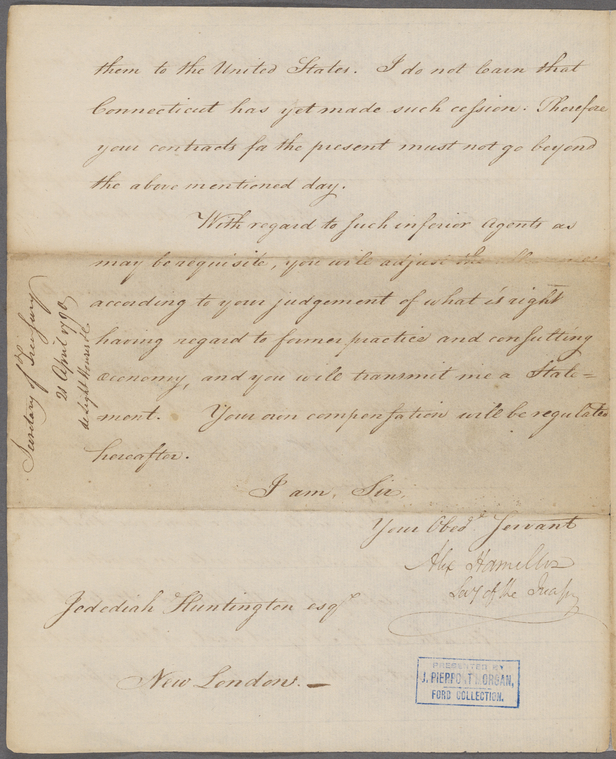 them to the United States. I do not learn that
Connecticut has yet made such cession: Therefore
your contracts for the present must not go beyond
the above mentioned day.
With regard to such inferior Agents as
may be requisite, you will adjust the
according to your judgement of what is right
having regard to former practice and consulting
Œconomy, and you will transmit me a State=
ment. Your own compensation will be regulated
hereafter.
I am, Sir,
Your Obedt. Servant
Alex Hamilton
Secy of the Treasy
Jedediah Huntington esqr
New London. —
Secretary of Treasury
21 April 1790
Light House &c
PRESENTED BY
J. PIERPONT MORGAN,
FORD COLLECTION.